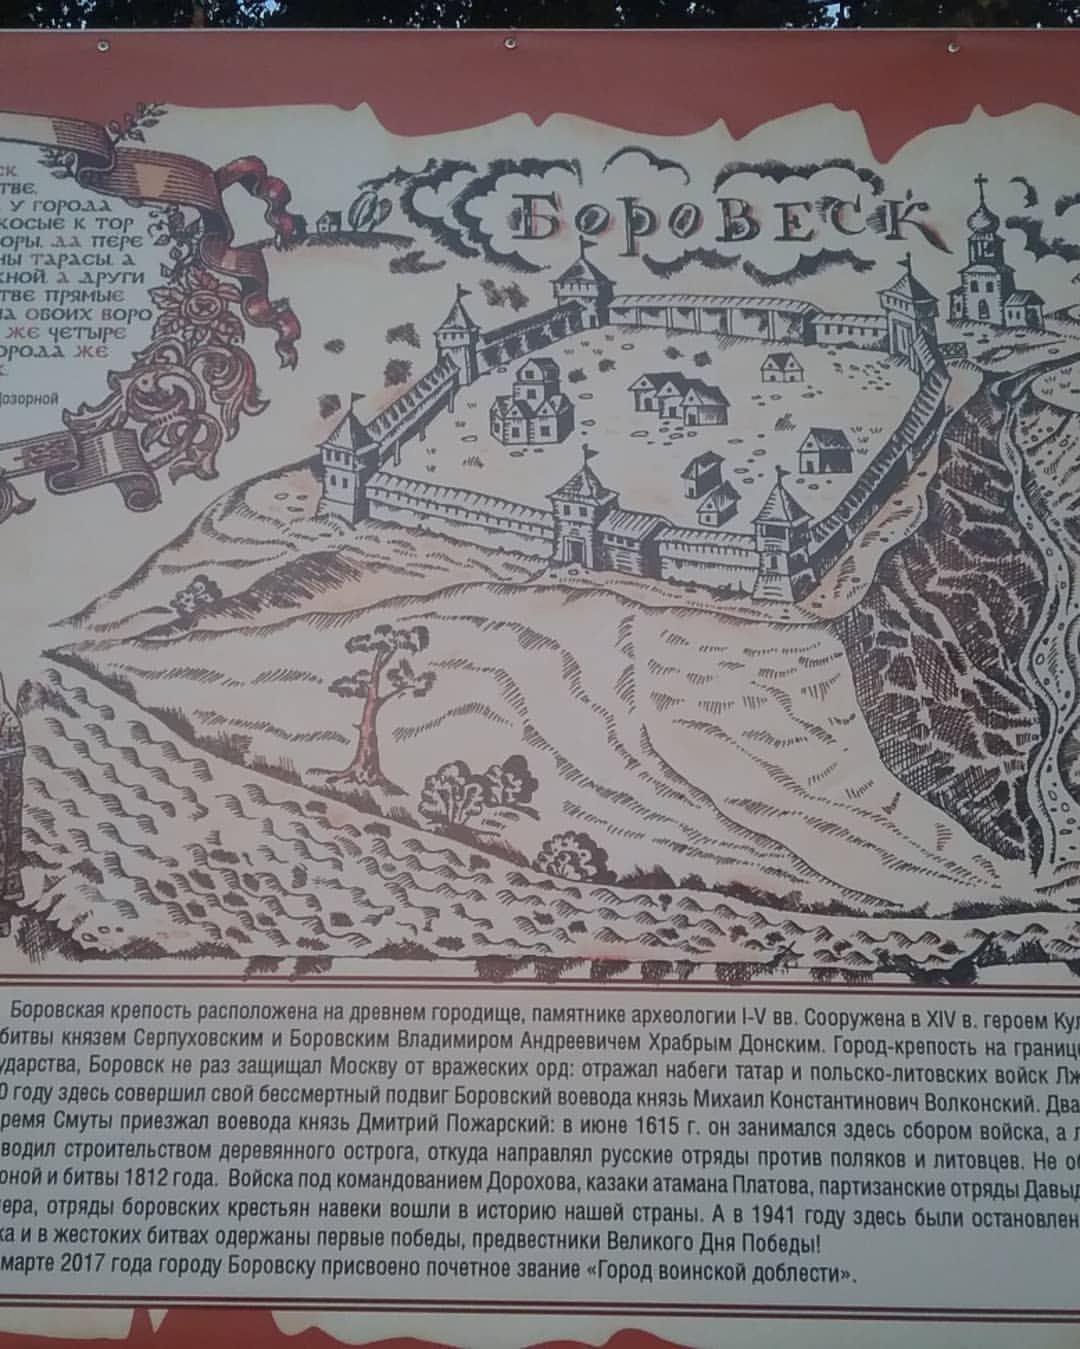 БОРОВЕСК
СК
ТВЕ,
У ГОРОДА
КОСЫЕ К ТОР
ВОРЫ, ДА ПЕРЕ
НЫ ТАРАСЫ, А
ЖНОЙ, А ДРУГИ
ТВЕ ПРЯМЫЕ
НА ОБОИХ ВОРО
ЖЕ ЧЕТЫРЕ
ОРОДА ЖЕ
Дозорной
Боровская крепость расположена на древнем городище, памятнике археологии I-V вв. Сооружена в XIV в. героем Кул
битвы князем Серпуховским и Боровским Владимиром Андреевичем Храбрым Донским. Город-крепость на границ
ударства, Боровск не раз защищал Москву от вражеских орд: отражал набеги татар и польско-литовских войск Лж
0 году здесь совершил свой бессмертный подвиг Боровский воевода князь Михаил Константинович Волконский. Два
ремя Смуты приезжал воевода князь Дмитрий Пожарский: в июне 1615 г. он занимался здесь сбором войска, а л
водил строительством деревянного острога, откуда направлял русские отряды против поляков и литовцев. Не об
оной и битвы 1812 года. Войска под командованием Дорохова, казаки атамана Платова, партизанские отряды Давыд
ера, отряды боровских крестьян навеки вошли в историю нашей страны. А в 1941 году здесь были остановлен
ка и в жестоких битвах одержаны первые победы, предвестники Великого Дня Победы!
марте 2017 года городу Боровску присвоено почетное звание «Город воинской доблести».